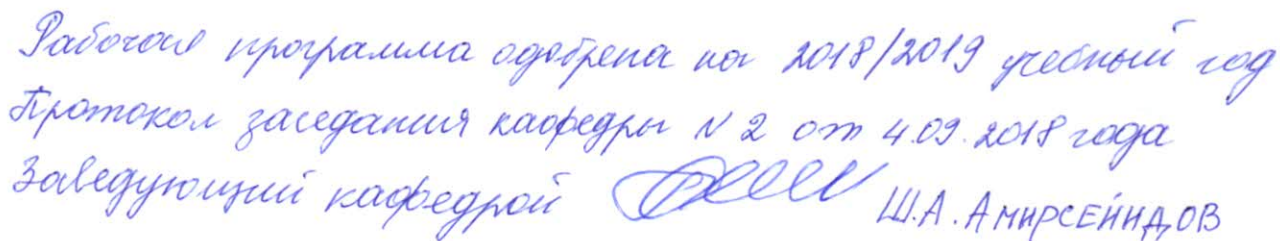 Рабочая программа одобрена на 2018/2019 учебный год
Протокол заседания кафедры N 2 от 4.09.2018 года
Заведующий кафедрой Ш.А. Амирсеиидов